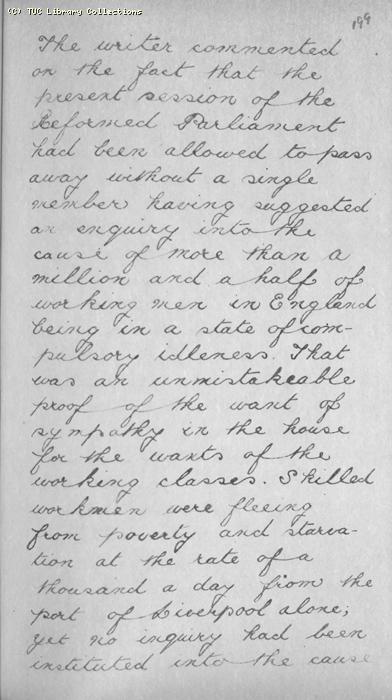 (C) TUC Library Collections
199
The writer commented
on the fact that the
present session of the
Reformed Parliament
had been allowed to pass
away without a single
member having suggested
an enquiry into the
cause of more than a
million and a half of
working men in England
being in a state of com-
pulsory idleness. That
was an unmistakeable
proof of the want of
sympathy in the house
for the wants of the
working classes. Skilled
workmen were fleeing
from poverty and starva-
tion at the rate of a
thousand a day from the
port of Liverpool alone;
yet no inquiry had been
instituted into the cause